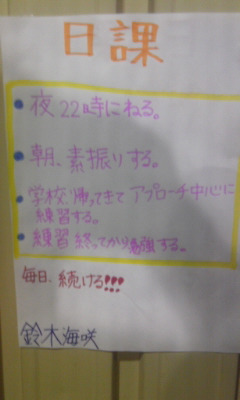 日課
・夜22時にねる。
・朝、素振りする。
・学校、帰ってきてアプローチ中心に
練習する。
・練習終ってから勉強する。
毎日、続ける!!!
鈴木海咲